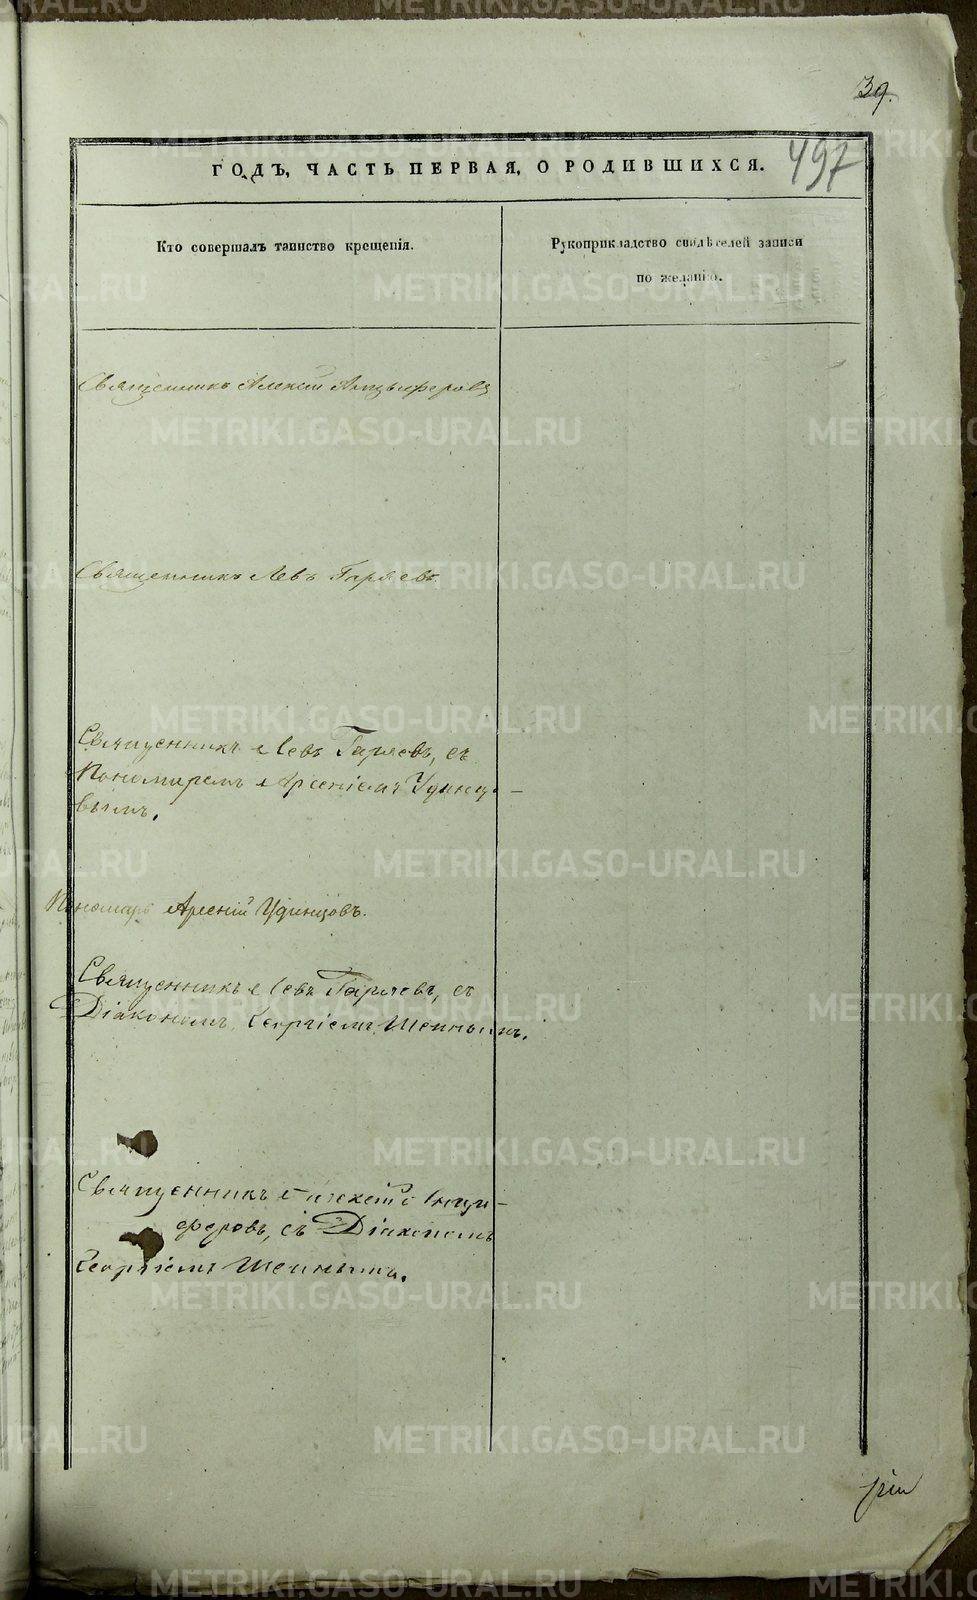 39.
497
ГОДЪ, ЧАСТЬ ПЕРВАЯ, О РОДИВШИХСЯ.
Кто совершалъ таинство крещенія.
Рукоприкладство свидѣтелей записи
по желанію.
Священникъ Алексій Анцыферовъ
Священникъ Левъ Гаряевъ.
Священникъ Левъ Гаряевъ, съ
Пономаремъ Арсеніемъ Удинцо-
вымъ.
Пономарь Арсеній Удинцовъ.
Священникъ Левъ Гаряевъ, съ
Діакономъ Георгіемъ Шеинымъ.
Священникъ Алексій Анци-
феровъ, съ Діакономъ
Георгіемъ Шеинымъ.
METRIKI.GASO-URAL.RU